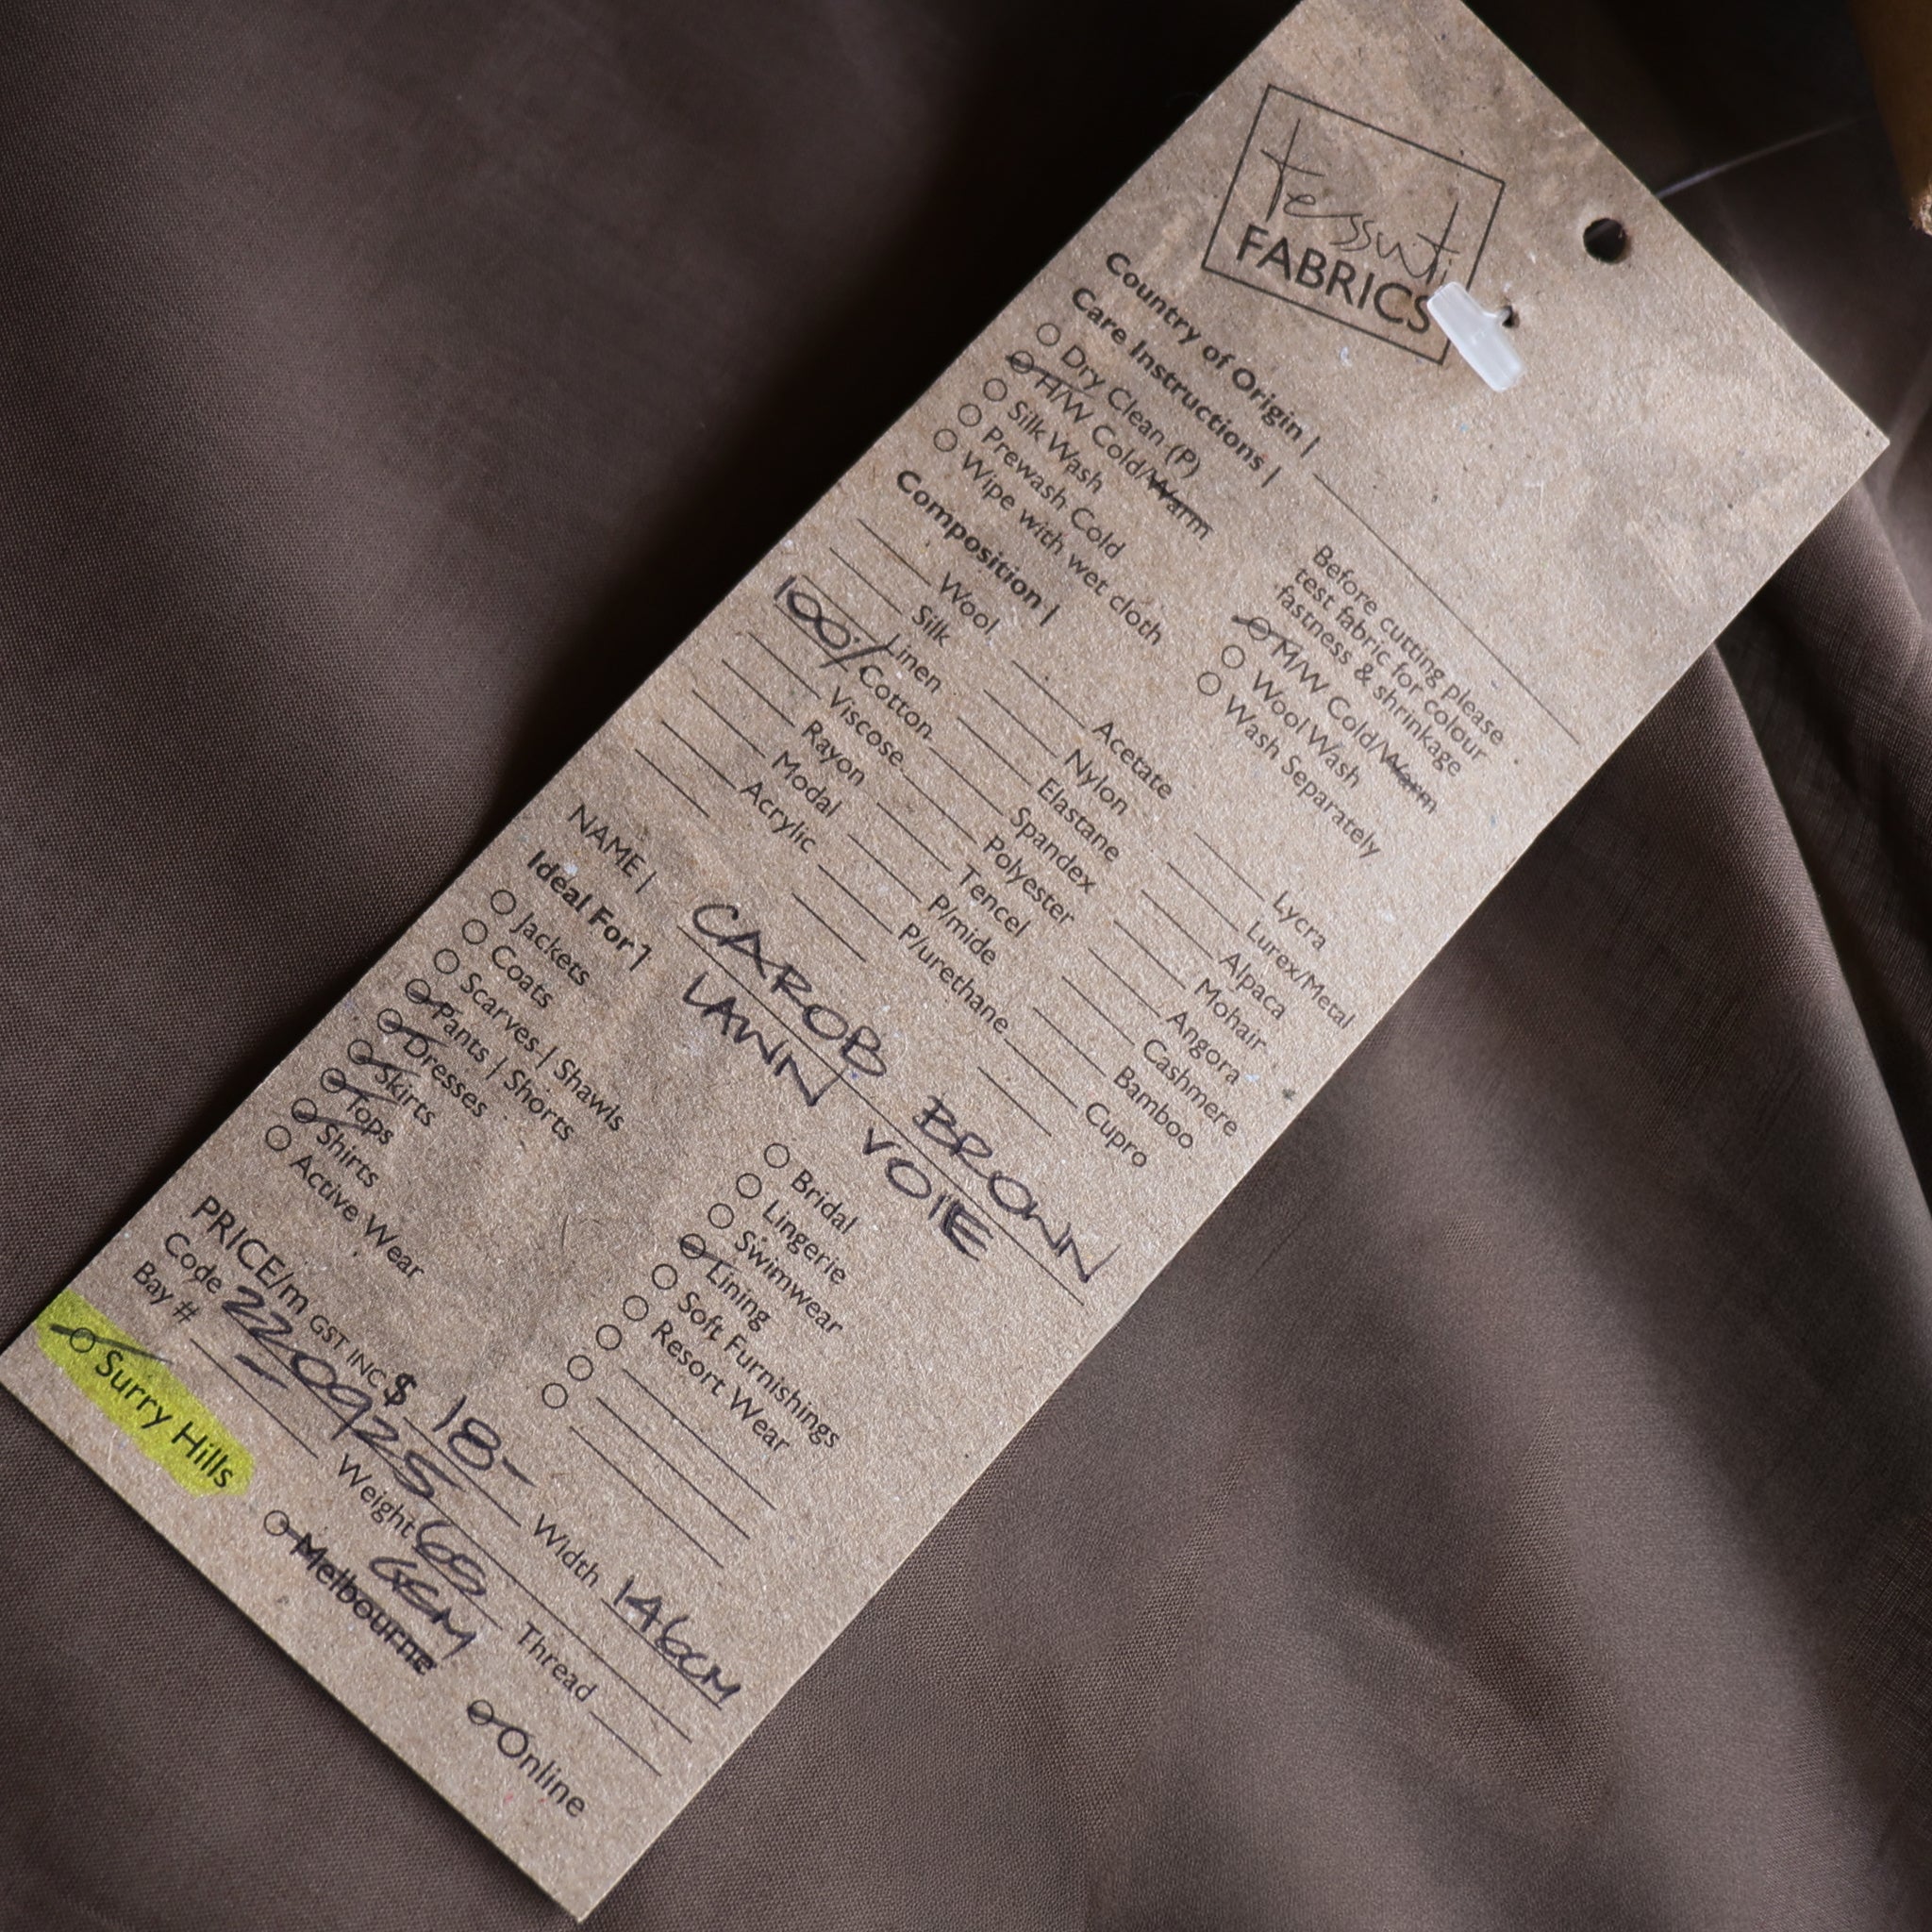 tessuti
FABRICS
Country of Origin |
Care Instructions |
Dry Clean (P)
H/W Cold/Warm
Silk Wash
Prewash Cold
Wipe with wet cloth
Before cutting please
test fabric for colour
fastness & shrinkage
M/W Cold/Warm
Wool Wash
Wash Separately
Composition |
Wool Acetate Lycra
Silk Nylon Lurex/Metal
Linen Elastane Alpaca
100% Cotton Spandex Mohair
Viscose Polyester Angora
Rayon Tencel Cashmere
Modal P/mide Bamboo
Acrylic P/urethane Cupro
NAME | CAROB BROWN
LAWN VOILE
Ideal For |
Jackets
Coats
Scarves | Shawls
Pants | Shorts
Dresses
Skirts
Tops
Shirts
Active Wear
Bridal
Lingerie
Swimwear
Lining
Soft Furnishings
Resort Wear
PRICE/m GST INC $ 18- Width 146cm
Code 220925
Bay # Weight 65 GSM Thread
Surry Hills Melbourne Online